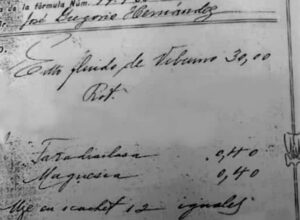 de la fórmula Núm.
José Gregorio Hernández
Exto fluido de Viburno 30,00
Rot.
Takadiastasa 0,40
Magnesia 0,40
en cachet 12 iguales